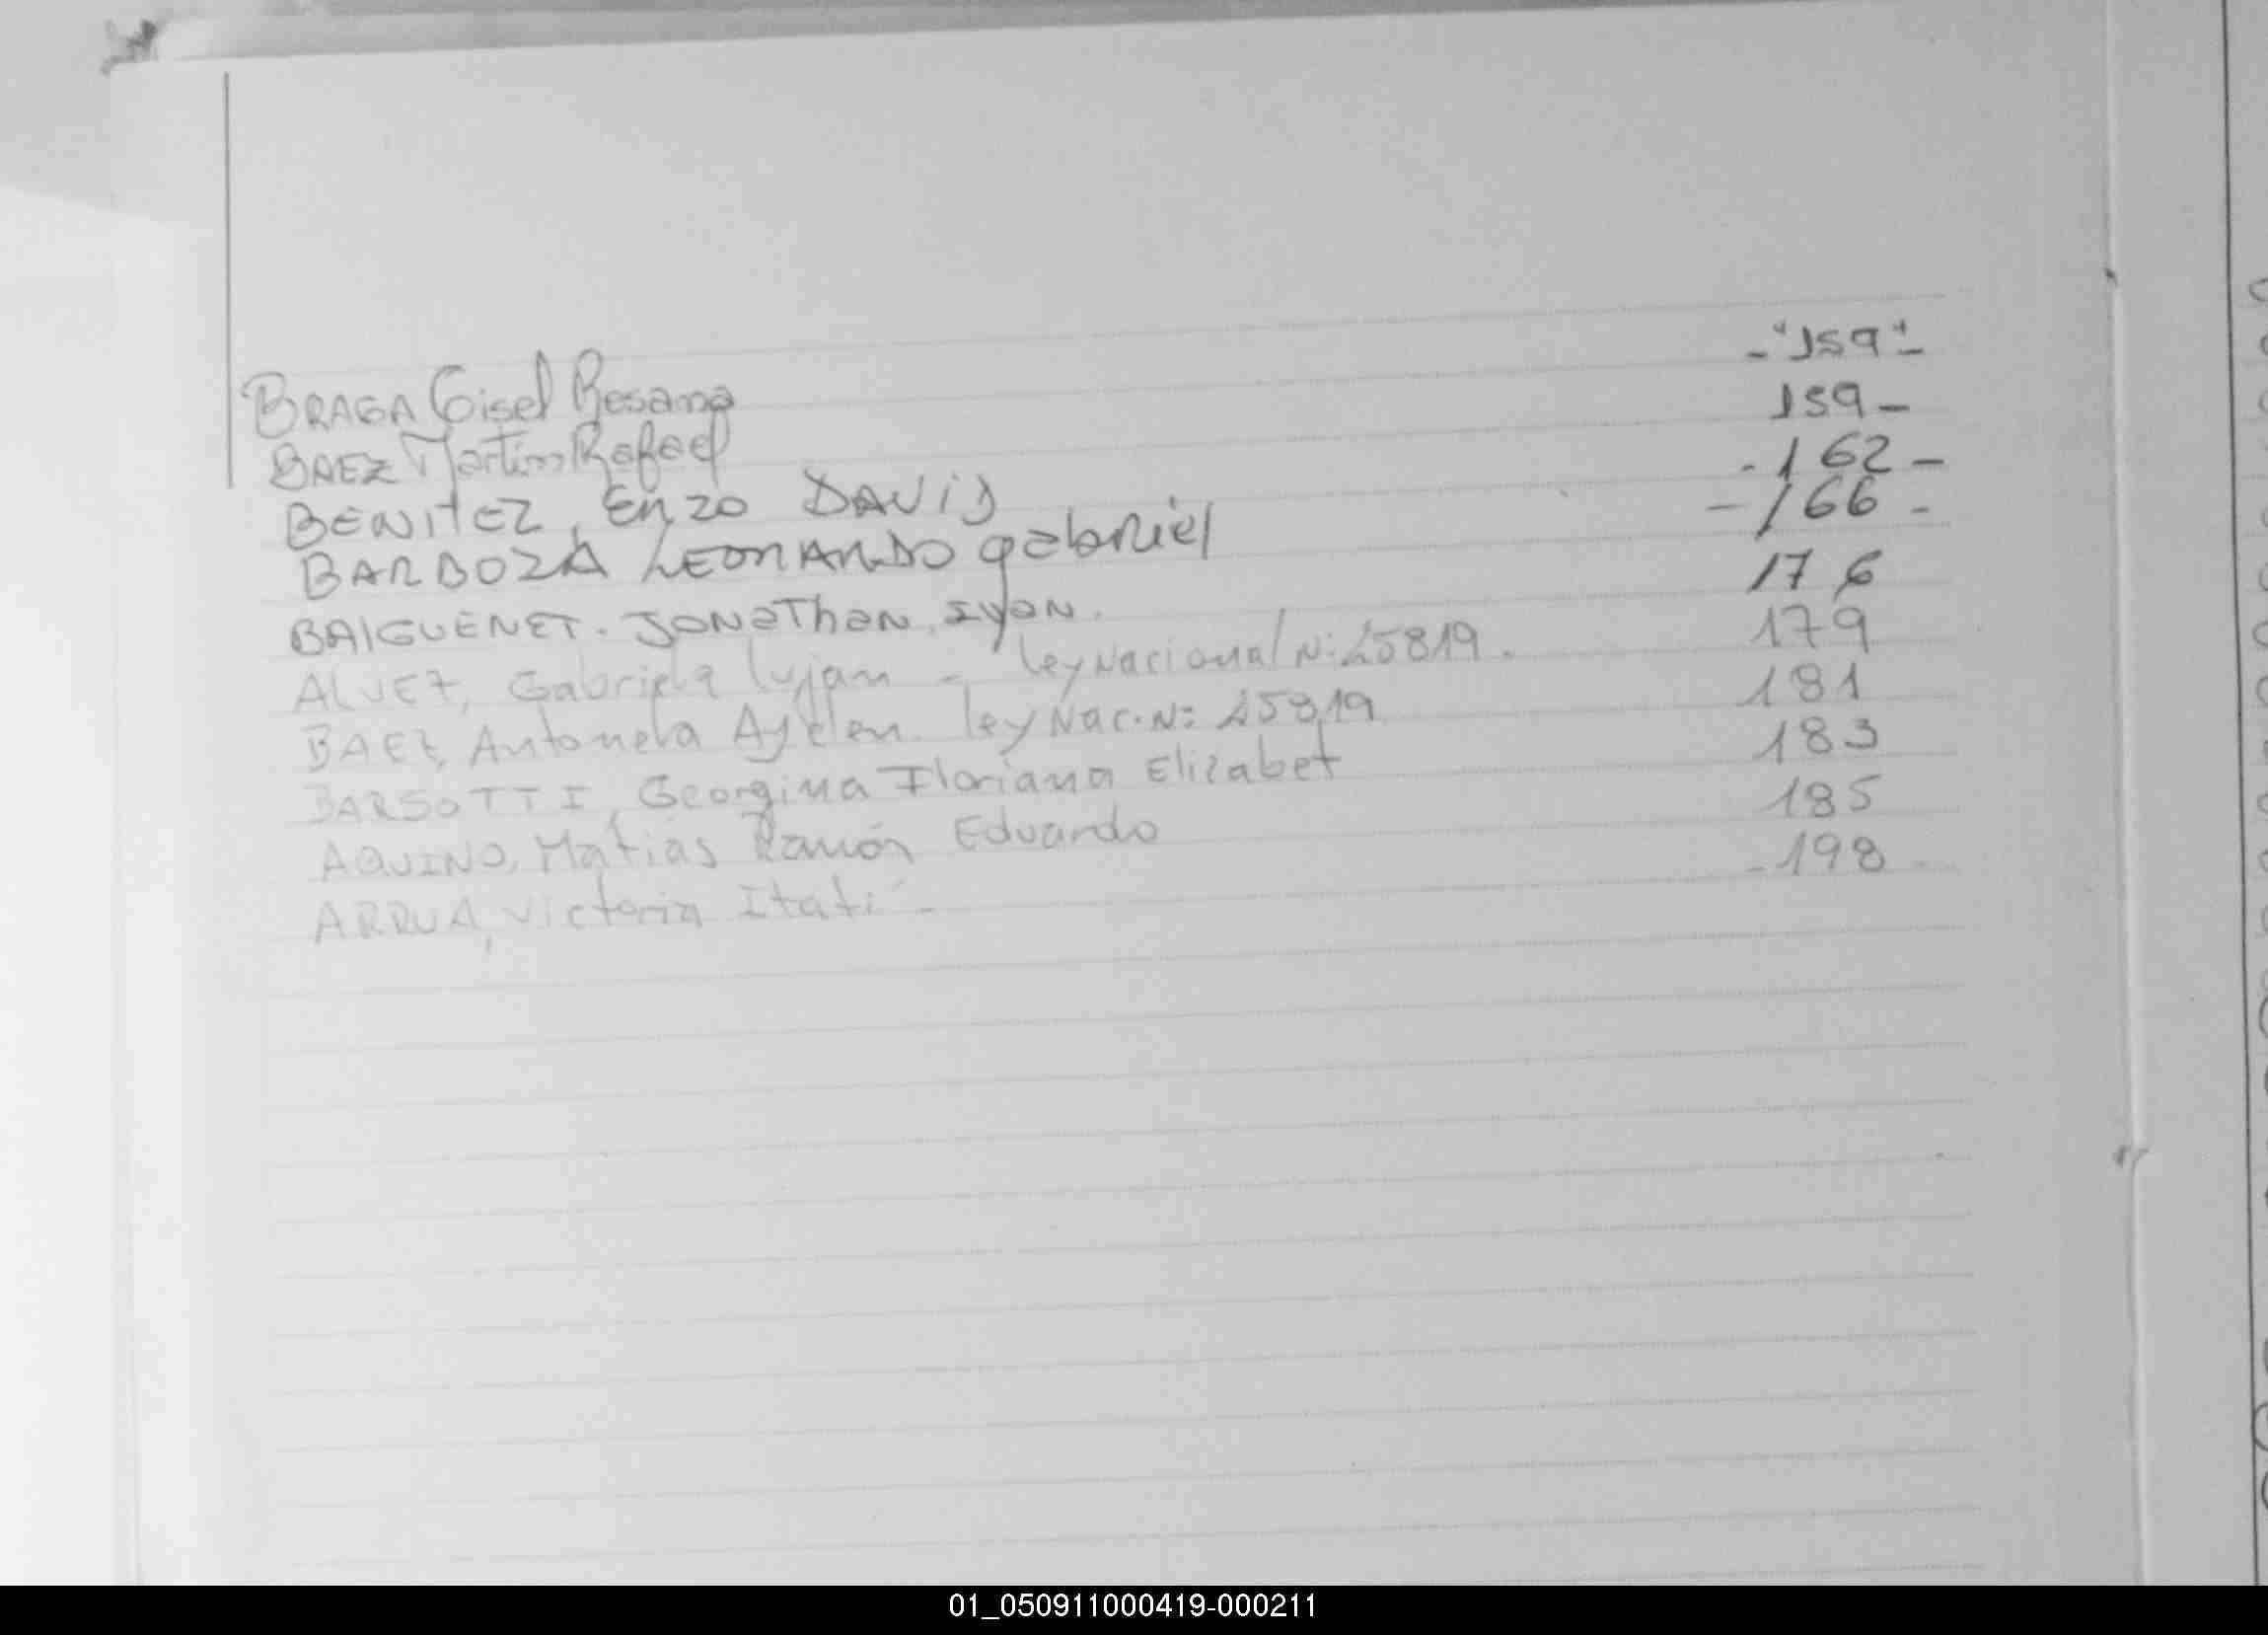 BRAGA Gisel Rosana -"159"-
BAEZ Martin Rafael 159-
BENITEZ, Enzo DAVID -162-
BARBOZA LEONARDO gabriel -166-
BAIGUENET. JONaThan, Ivan. 176
ALVEZ, Gabriela lujan - ley Nacional N: 25819. 179
BAEZ, Antonela Ayelen. ley Nac. N: 25819 181
BARSOTTI, Georgina Floriana Elizabet 183
AQUINO, Matias Ramón Eduardo 185
ARRUA, Victoria Itatí - -198-
01_050911000419-000211